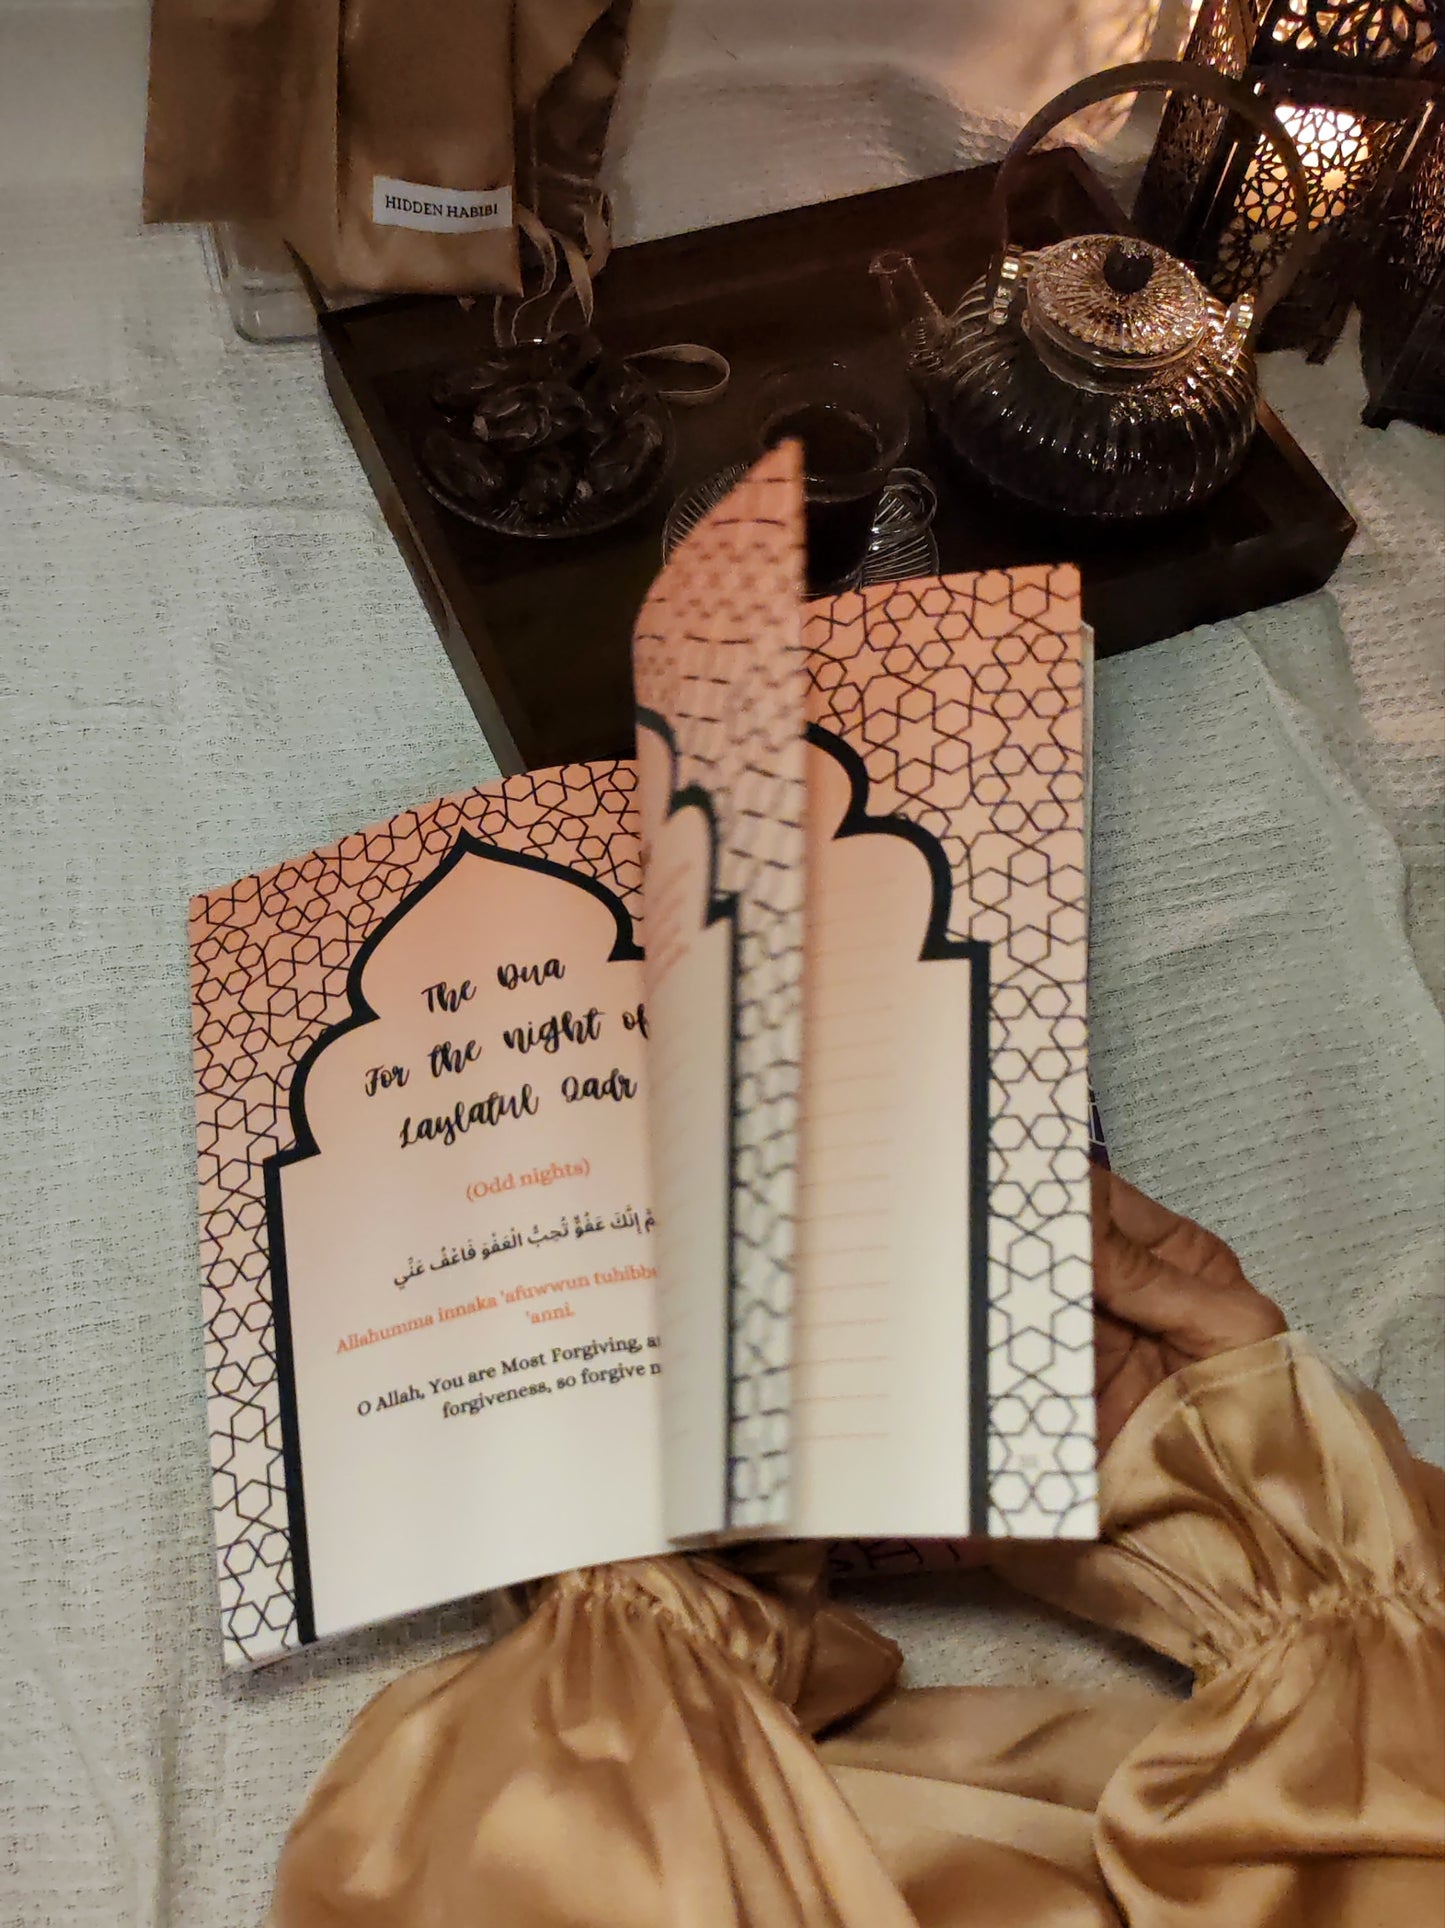 HIDDEN HABIBI
The Dua
For the night of
Laylatul Qadr
(Odd nights)
إِنَّكَ عَفُوٌّ تُحِبُّ الْعَفْوَ فَاعْفُ عَنِّي
Allahumma innaka 'afuwwun
'anni.
O Allah, You are Most Forgiving,
forgiveness, so forgive